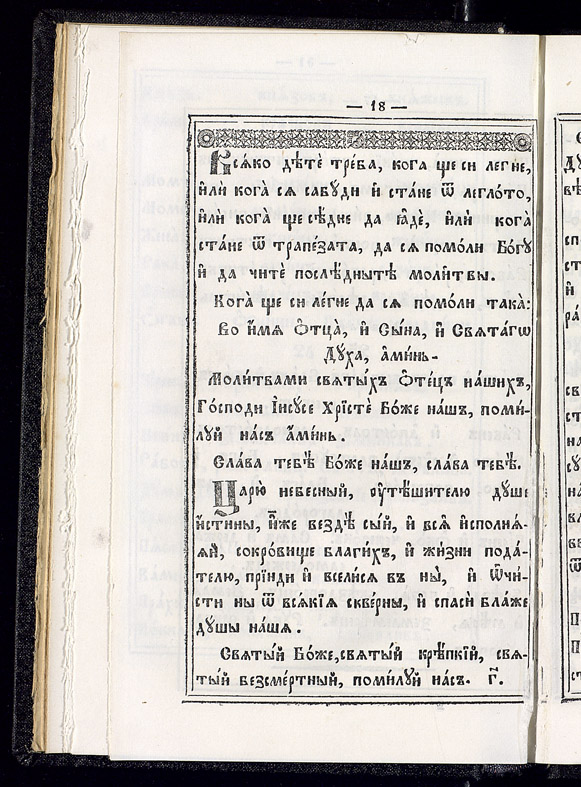 — 18 —
Всѧ́ко дѣтѐ тре́ба, кога ще си легне,
и҆лѝ кога̀ сѧ сабꙋди и҆ ста́не ѿ легло́то,
и҆лѝ кога̀ ще сѣ́дне да ꙗ҆дѐ, и҆лѝ кога̀
ста́не ѿ трапе́зата, да сѧ помо́ли Бо́гꙋ
и҆ да читѐ послѣ́днытѣ моли́твы.
Кога̀ ще си ле́гне да сѧ помо́ли така̀:
Во и҆́мѧ Ѻ҆тца̀, и҆ Сы́на, и҆ Свѧта́гѡ
Дꙋ́ха, а҆ми́нь-
Моли́твами свѧты́хъ Ѻ҆те́цъ на́шихъ,
Го́споди І҆исꙋсе Хрїстѐ Бо́же на́шъ, поми́-
лꙋй на́съ а҆ми́нь.
Сла́ва тебѣ̀ Бо́же на́шъ, сла́ва тебѣ̀.
Царю̀ небесный, ᲂу҆тѣ́шителю дꙋ́ше
и҆́стины, и҆́же вездѣ̀ сы́й, и҆ всѧ̑ и҆сполнѧ́-
ѧй, сокро́вище благи́хъ, и҆ жи́зни пода́-
телю, прїиди и҆ всели́сѧ въ ны̀, и҆ ѡ҆чи́-
сти ны ѿ всѧ́кїѧ скве́рны, и҆ спасѝ бла́же
дꙋ́шы на́шѧ.
Свѧты́й Бо́же, свѧты́й крѣ́пкїй, свѧ-
ты́й безсме́ртный, поми́лꙋй на́съ. г҃.